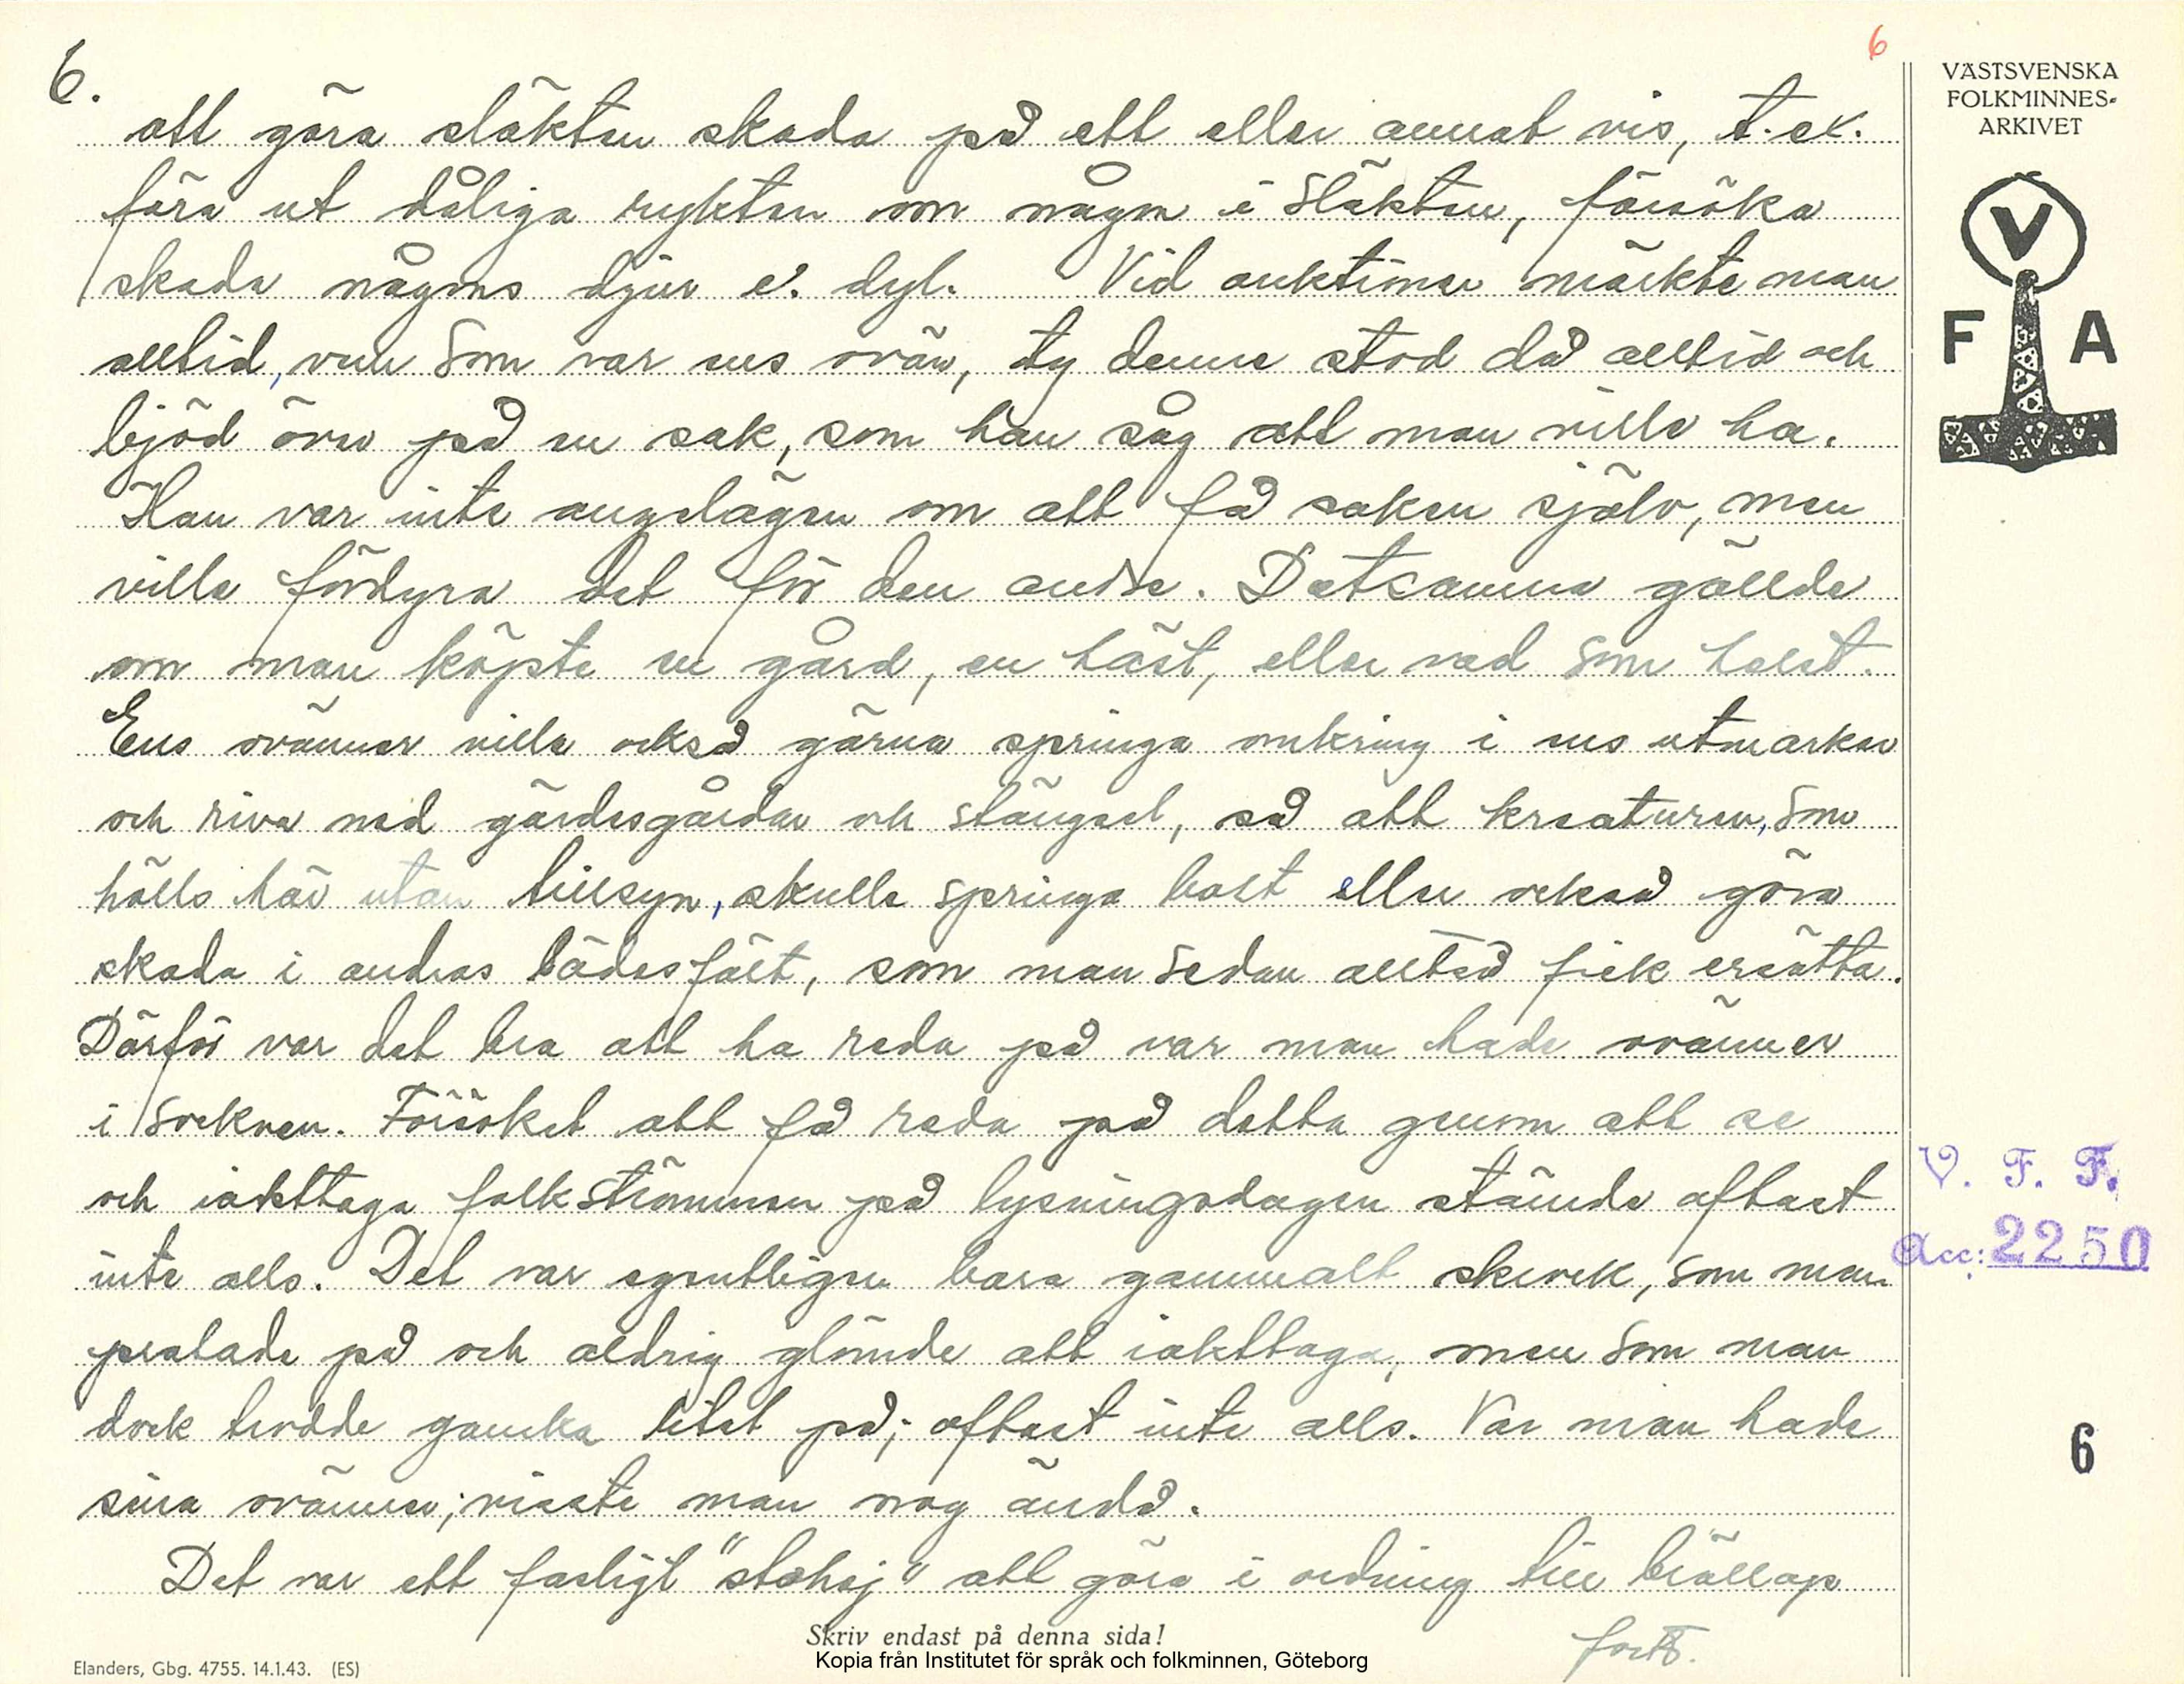 6.
6
VÄSTSVENSKA
FOLKMINNES-
ARKIVET
V
F A
att göra släkten skada på ett eller annat vis, t.ex.
föra ut dåliga rykten om någon i släkten, försöka
skada någons djur e. dyl. Vid auktioner märkte man
alltid, vem som var ens ovän, ty denne stod då alltid och
bjöd över på en sak, som han såg att man ville ha.
Han var inte angelägen om att få saken själv, men
ville fördyra det för den andre. Detsamma gällde
om man köpte en gård, en häst, eller vad som helst.
Ens ovänner ville också gärna springa omkring i ens utmarker
och riva ned gärdesgårdar och stängsel, så att kreaturen, som
hölls här utan tillsyn, skulle springa bort eller också göra
skada i andras sädesfält, som man sedan alltså fick ersätta.
Därför var det bra att ha reda på var man hade ovänner
i socknen. Försöket att få reda på detta genom att se
och iakttaga folkströmmen på lysningsdagen stämde oftast
inte alls. Det var egentligen bara gammalt skrock, som man
pratade på och aldrig glömde att iakttaga, men som man
dock trodde ganska litet på; oftast inte alls. Var man hade
sina ovänner; visste man nog ändå.
Det var ett fasligt "stohej" att göra i ordning till bröllop
forts.
V. F. F.
Acc: 2250
6
Skriv endast på denna sida!
Kopia från Institutet för språk och folkminnen, Göteborg
Elanders, Gbg. 4755. 14.1.43. (ES)